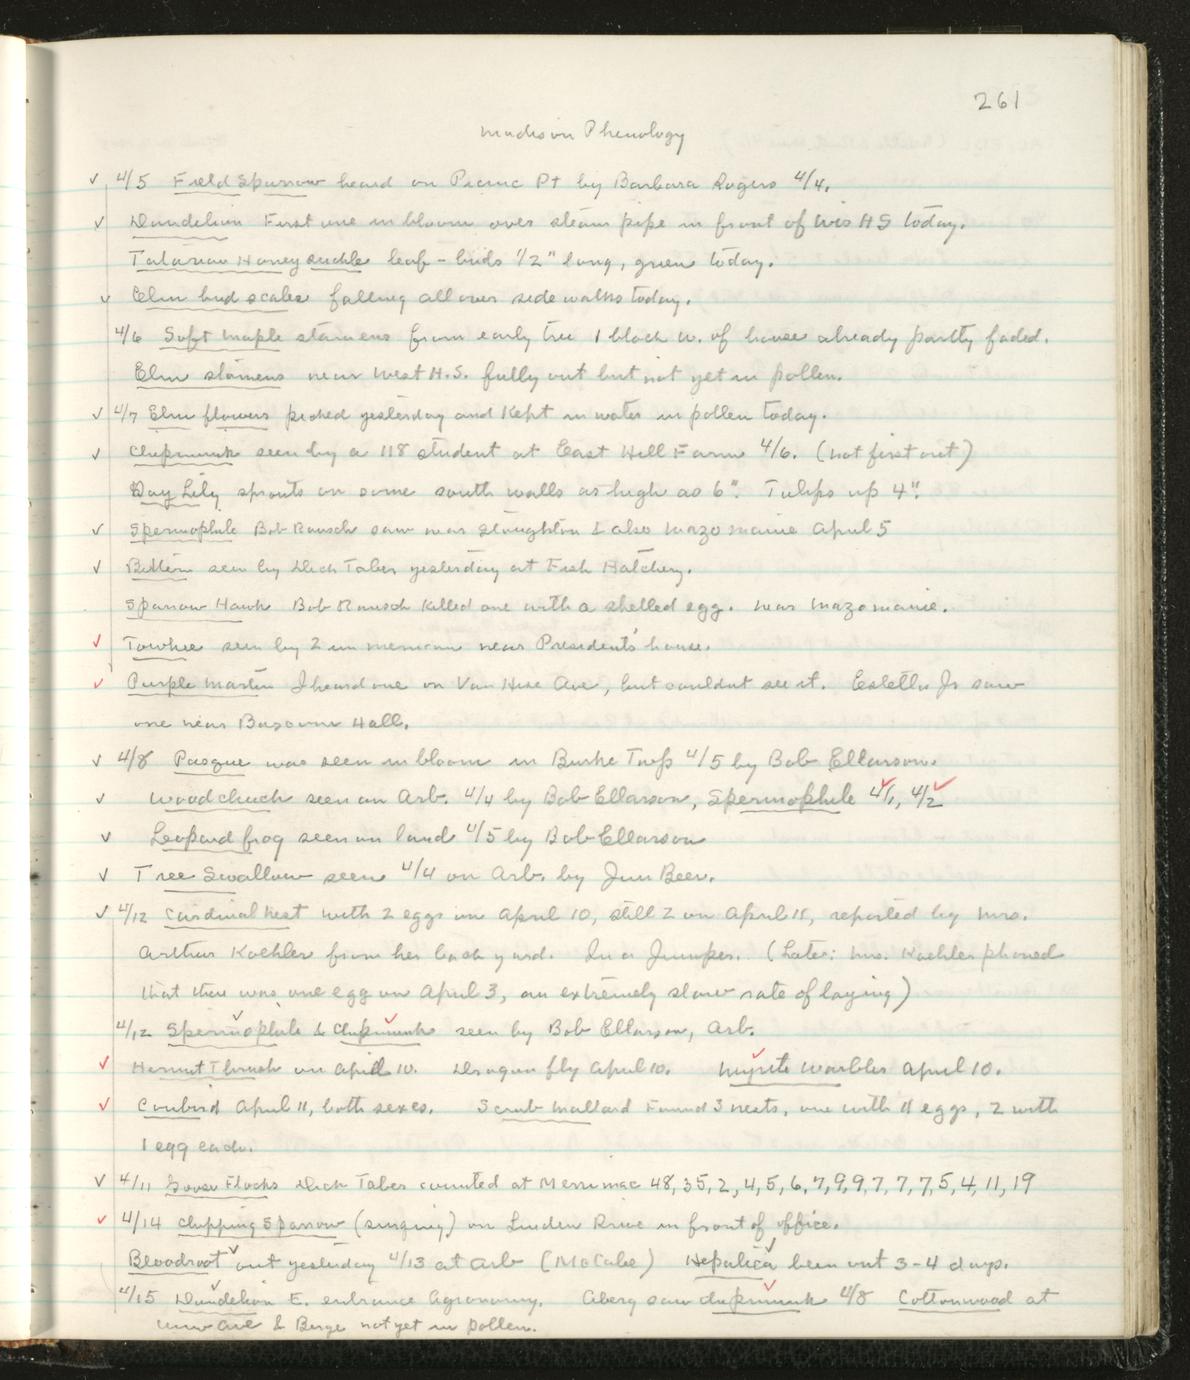 261
Madison Phenology
✓ 4/5 Field Sparrow heard on Picnic Pt by Barbara Rogers 4/4.
✓ Dandelion First one in bloom over steam pipe in front of Wis HS today.
Tatarian Honeysuckle leaf-buds 1/2" long, green today.
✓ Elm bud scales falling all over sidewalks today.
4/6 Soft Maple stamens from early tree 1 block w. of house already partly faded.
Elm stamens near West H.S. fully out but not yet in pollen.
✓ 4/7 Elm flowers picked yesterday and kept in water in pollen today.
✓ Chipmunk seen by a 118 student at East Hill Farm 4/6. (not first out)
Day Lily sprouts on some south walls as high as 6". Tulips up 4".
✓ Spermophile Bob Rausch saw near Stoughton & also Mazomanie April 5
✓ Bittern seen by Dick Taber yesterday at Fish Hatchery.
Sparrow Hawk Bob Rausch killed one with a shelled egg. near Mazomanie.
✓ Towhee seen by 2 near Presidents' house.
✓ Purple Martin I heard one on Van Hise Ave, but couldnt see it. Estella Jr saw
one near Bascom Hall.
✓ 4/8 Pasque was seen in bloom in Burke Twp 4/5 by Bob Ellarson.
✓ Woodchuck seen on Arb. 4/4 by Bob Ellarson, Spermophile 4/1, 4/2
✓ Leopard frog seen on land 4/5 by Bob Ellarson
✓ Tree Swallow seen 4/4 on Arb. by Jim Beer.
✓ 4/12 Cardinal nest with 2 eggs on April 10, still 2 on April 11, reported by Mrs.
Arthur Koehler from her back yard. In a Juniper. (Later: Mrs. Koehler phoned
that there was one egg on April 3, an extremely slow rate of laying)
4/12 Spermophile & Chipmunk seen by Bob Ellarson, Arb.
✓ Hermit Thrush on April 10. Dragon fly April 10. Myrtle Warbler April 10.
✓ Cowbird April 11, both sexes. Scrub Mallard Found 3 nests, one with 11 eggs, 2 with
1 egg each.
✓ 4/11 Goose Flocks Dick Taber counted at Merrimac 48, 35, 2, 4, 5, 6, 7, 9, 9, 7, 7, 7, 5, 4, 11, 19
✓ 4/14 Chipping Sparrow (singing) on Linden Drive in front of office.
Bloodroot out yesterday 4/13 at Arb (McCabe) Hepatica been out 3-4 days.
4/15 Dandelion E. entrance Agronomy. Aberg saw chipmunk 4/8 Cottonwood at
Univ Ave & Barge not yet in pollen.